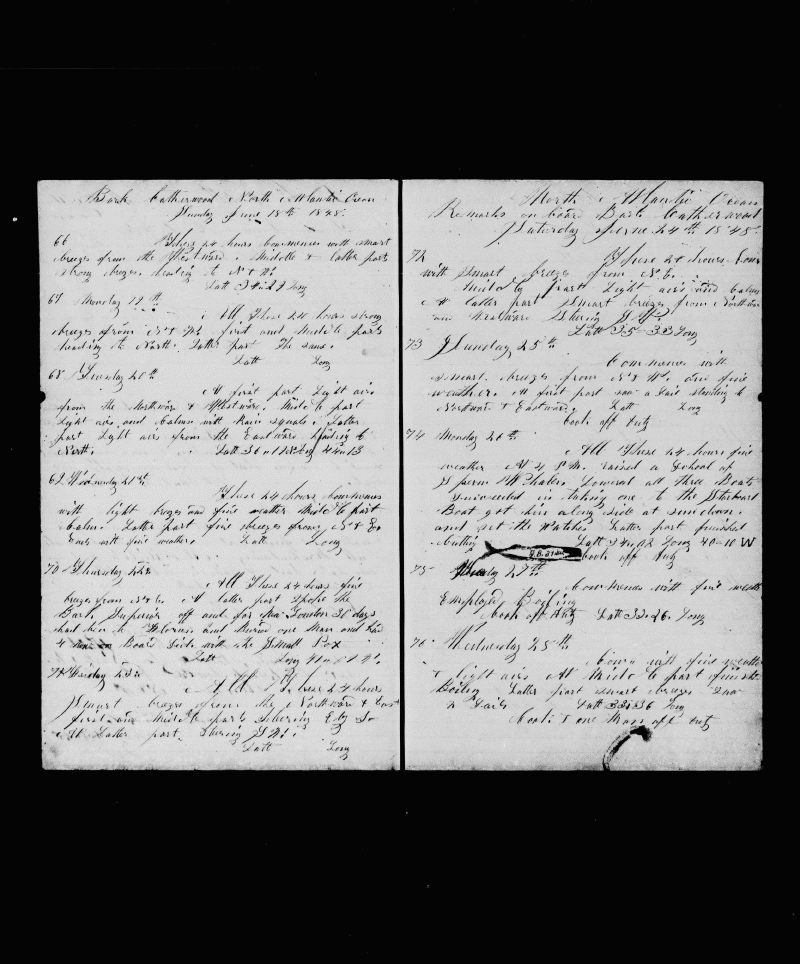 Bark Catherwood North Atlantic Ocean
Sunday June 18th 1848.
66 These 24 hours Commences with smart
breezes from the Westward. Middle & latter part
strong breezes. heading to N & W.
Latt 34:27 Long
67 Monday 19th
All These 24 hours strong
breezes from N & W. first and Middle parts
heading to North. Latter part The same.
Latt Long
68 Tuesday 20th
At first part Light airs
from the Northward & Westward. Middle part
Light airs and Calms with Rain squals. Latter
part Light airs from the Eastward Heading to
North. Latt 36"12 Long 41"13
69 Wednesday 21st
These 24 hours Commences
with light brezes and fine weather Middle part
Calm. Latter part fine breezes from N & E.
Ends with fine weather. Latt Long
70 Thursday 22d
All These 24 hours fine
brezes from N & E. At latter part Spoke the
Bark Superior off and for New London 30 days
had been to Flores. and Buried one Man and had
4 on Board Sick with the Small Pox
Latt Long
71 Friday 23d
All These 24 hours
Smart brezes from the Northward & East
first and Middle parts Stearing Ely
At Latter part. Stearing
Latt Long
North Atlantic Ocean
Remarks on board Bark Catherwood
Saturday June 24th 1848.
72 These 24 hours Com
with Smart breezes from N. E.
Middle part Light airs and Calms
At latter part Smart brezes from Northward
and Westward Stearing
Latt 35-33 Long
73 Sunday 25th
Commences with
Smart brezes from N & W. and fine
weather. At first part saw a Sail standing to
Northward & Eastward. Latt Long
Cook off duty
74 Monday 26th
All These 24 hours fine
weather At 4 P.M. raised a School of
Sperm Whales. Lowered all three Boats
Succeeded in taking one to the Starboard
Boat got him along side at sundown.
and set the Watches Latter part finished
Cutting Latt 34"02 Long 40=10 W
Cook off duty
75 Tuesday 27th
Commences with fine weath
Employed Boiling
Cook off duty Latt 33:26. Long
76 Wednesday 28th
Comm with fine weathe
& light airs At Middle part finishd
Boiling Latter part smart brezes Saw
2 Sails Latt 33:36 Long
Cook & one Man off duty